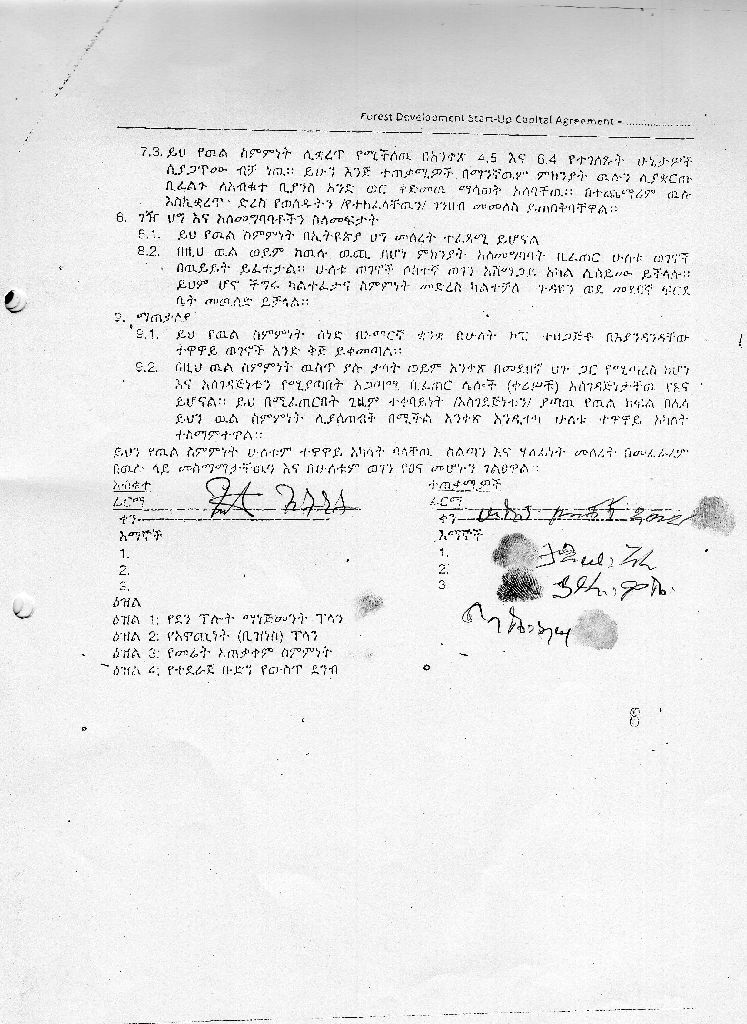 Forest Development Start-Up Capital Agreement -
7.3. ይህ የዉል ስምምነት ሊቋረጥ የሚችለዉ በአንቀጽ 4.5 እና 6.4 የተገለጹት ሁኔታዎች
ሲያጋጥሙ ብቻ ነዉ። ይሁን እንጅ ተጠቃሚዎች በማንኛዉም ምክንያት ዉሉን ሲያቋርጡ
ቢፈልጉ ለአብቁተ ቢያንስ አንድ ወር ቀድመዉ ማሳወቅ አለባቸዉ። በተጨማሪም ዉሉ
እስኪቋረጥ ድረስ የወሰዱትን /የተከፈላቸዉን/ ገንዘብ መመለስ ይጠበቅባቸዋል።
8. ገዥ ህግ እና አለመግባባቶችን ስለመፍታት
8.1. ይህ የዉል ስምምነት በኢትዮጵያ ህግ መሰረት ተፈጻሚ ይሆናል
8.2. በዚህ ዉል ወይም ከዉሉ ዉጪ በሆነ ምክንያት አለመግባባት ቢፈጠር ሁለቱ ወገኖች
በዉይይት ይፈቱታል። ሁለቱ ወገኖች ሶስተኛ ወገን አሸማጋይ አካል ሊሰይሙ ይችላሉ።
ይህም ሆኖ ችግሩ ካልተፈታና ስምምነት መድረስ ካልተቻለ ጉዳዩን ወደ መደበኛ ፍርድ
ቤት መዉሰድ ይቻላል።
9. ማጠቃለያ
9.1. ይህ የዉል ስምምነት ሰነድ በአማርኛ ቋንቋ በሁለት ኮፒ ተዘጋጅቶ በእያንዳንዳቸው
ተዋዋይ ወገኖች አንድ ቅጅ ይቀመጣል።
9.2. በዚህ ዉል ስምምነት ዉስጥ ያሉ ቃላት ወይም አንቀጽ በመደበኛ ህጉ ጋር የሚጣረስ ከሆነ
እና አስገዳጅነቱን የሚያጣበት አጋጣሚ ቢፈጠር ሌሎች (ቀሪዎቹ) አስገዳጅነታቸዉ የጸና
ይሆናል። ይህ በሚፈጠርበት ጊዜም ተቀባይነት /አስገዳጅነቱን/ ያጣዉ የዉል ክፍል በሌላ
ይህን ዉል ስምምነት ሊያስጠብቅ በሚችል አንቀጽ እንዲተካ ሁለቱ ተዋዋይ አካላት
ተስማምተዋል።
ይህን የዉል ስምምነት ሁለቱም ተዋዋይ አካላት ባላቸዉ ስልጣን እና ሃላፊነት መሰረት በመፈራረም
በዉሉ ላይ መስማማታቸዉን እና በሁለቱም ወገን የፀና መሆኑን ገልፀዋል።
አብቁተ
ተጠቃሚዎች
ፊርማ
ፊርማ
ቀን
ቀን
እማኞች
እማኞች
1.
1.
2.
2.
3.
3
ዕዝል
ዕዝል 1: የደን ፕሎት ማኔጅመንት ፕላን
ዕዝል 2: የአዋጪነት (ቢዝነስ) ፕላን
ዕዝል 3: የመሬት አጠቃቀም ስምምነት
ዕዝል 4: የተደራጀ ቡድን የውስጥ ደንብ
8